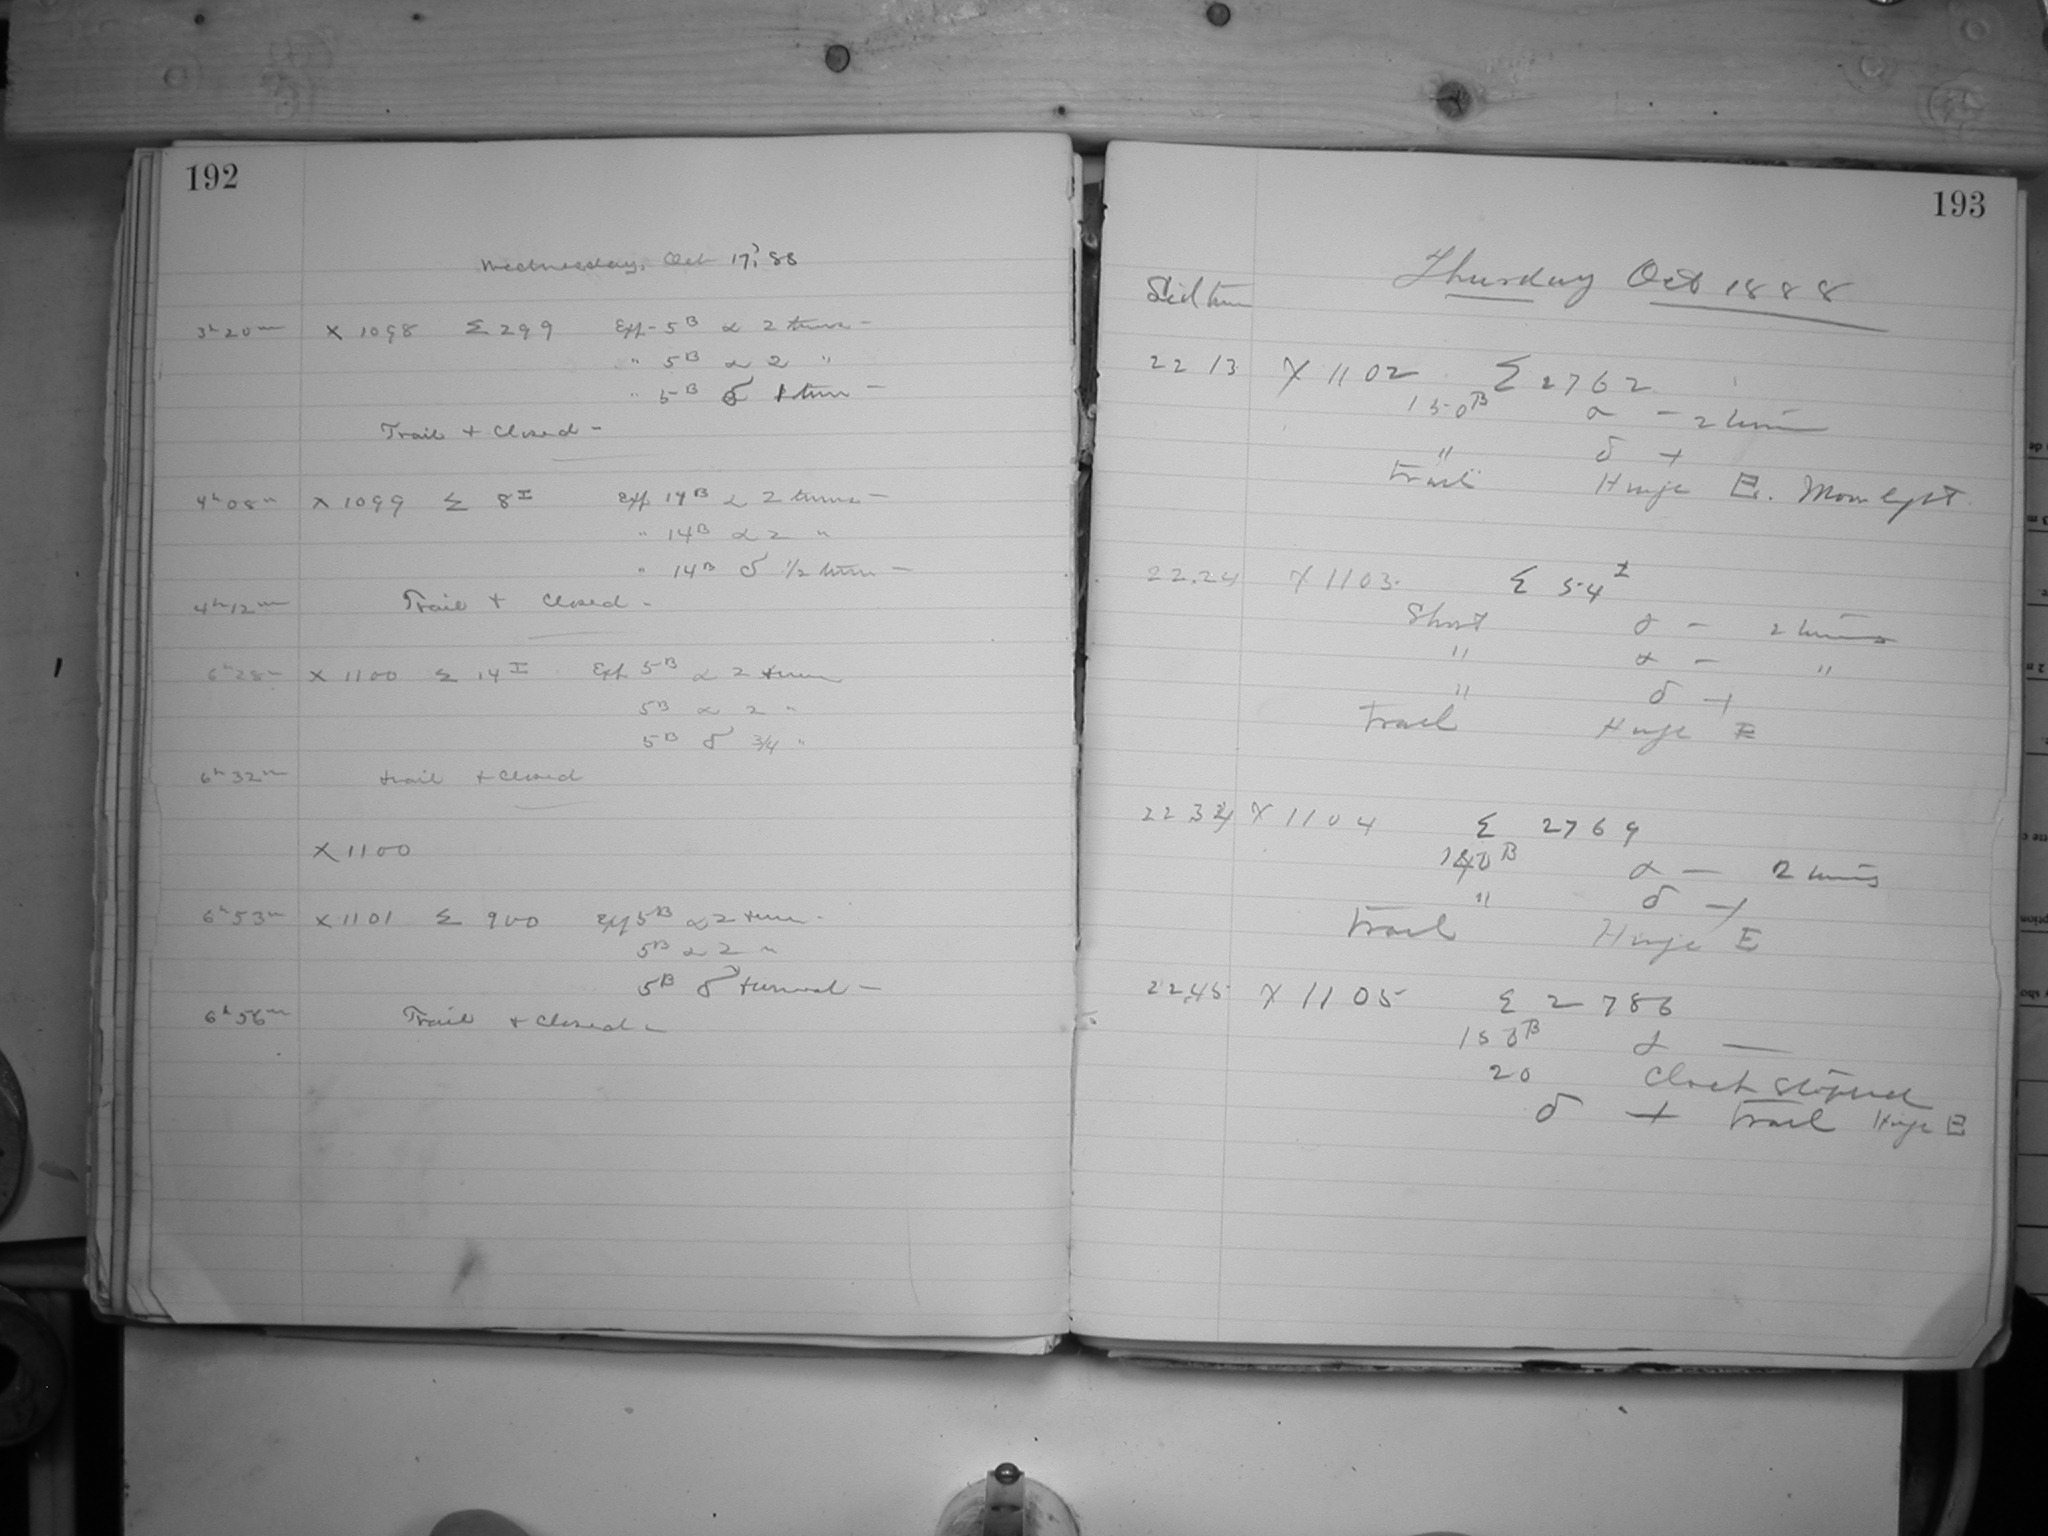 192
Wednesday, Oct 17, '88
3h20m X 1098 Σ 299 Exp- 5B α 2 turns -
" 5B α 2 "
" 5B δ 1 turn -
Trail + Closed -
4h08m X 1099 Σ 8I Exp 14B α 2 turns -
" 14B α 2 "
" 14B δ 1/2 turn -
4h12m Trail + Closed -
6h28m X 1100 Σ 14I Exp 5B α 2 turns
5B α 2 "
5B δ 3/4 "
6h32m trail + closed
X 1100
6h53m X 1101 Σ 900 Exp 5B α 2 turns -
5B α 2 "
5B δ turned -
6h56m Trail + closed -
193
Thursday Oct 1888
Sid time
22 13 X 1102 Σ 2762
150B α - 2 turns
" δ +
trail Hinge E. Moonlight.
22.24 X 1103 Σ 54I
Short α - 2 turns
" α - "
" δ +
trail Hinge E
22 34 X 1104 Σ 2769
140B α - 2 turns
" δ +
trail Hinge E
22.45 X 1105 Σ 2786
150B α -
20 Clock stopped
δ + trail Hinge E